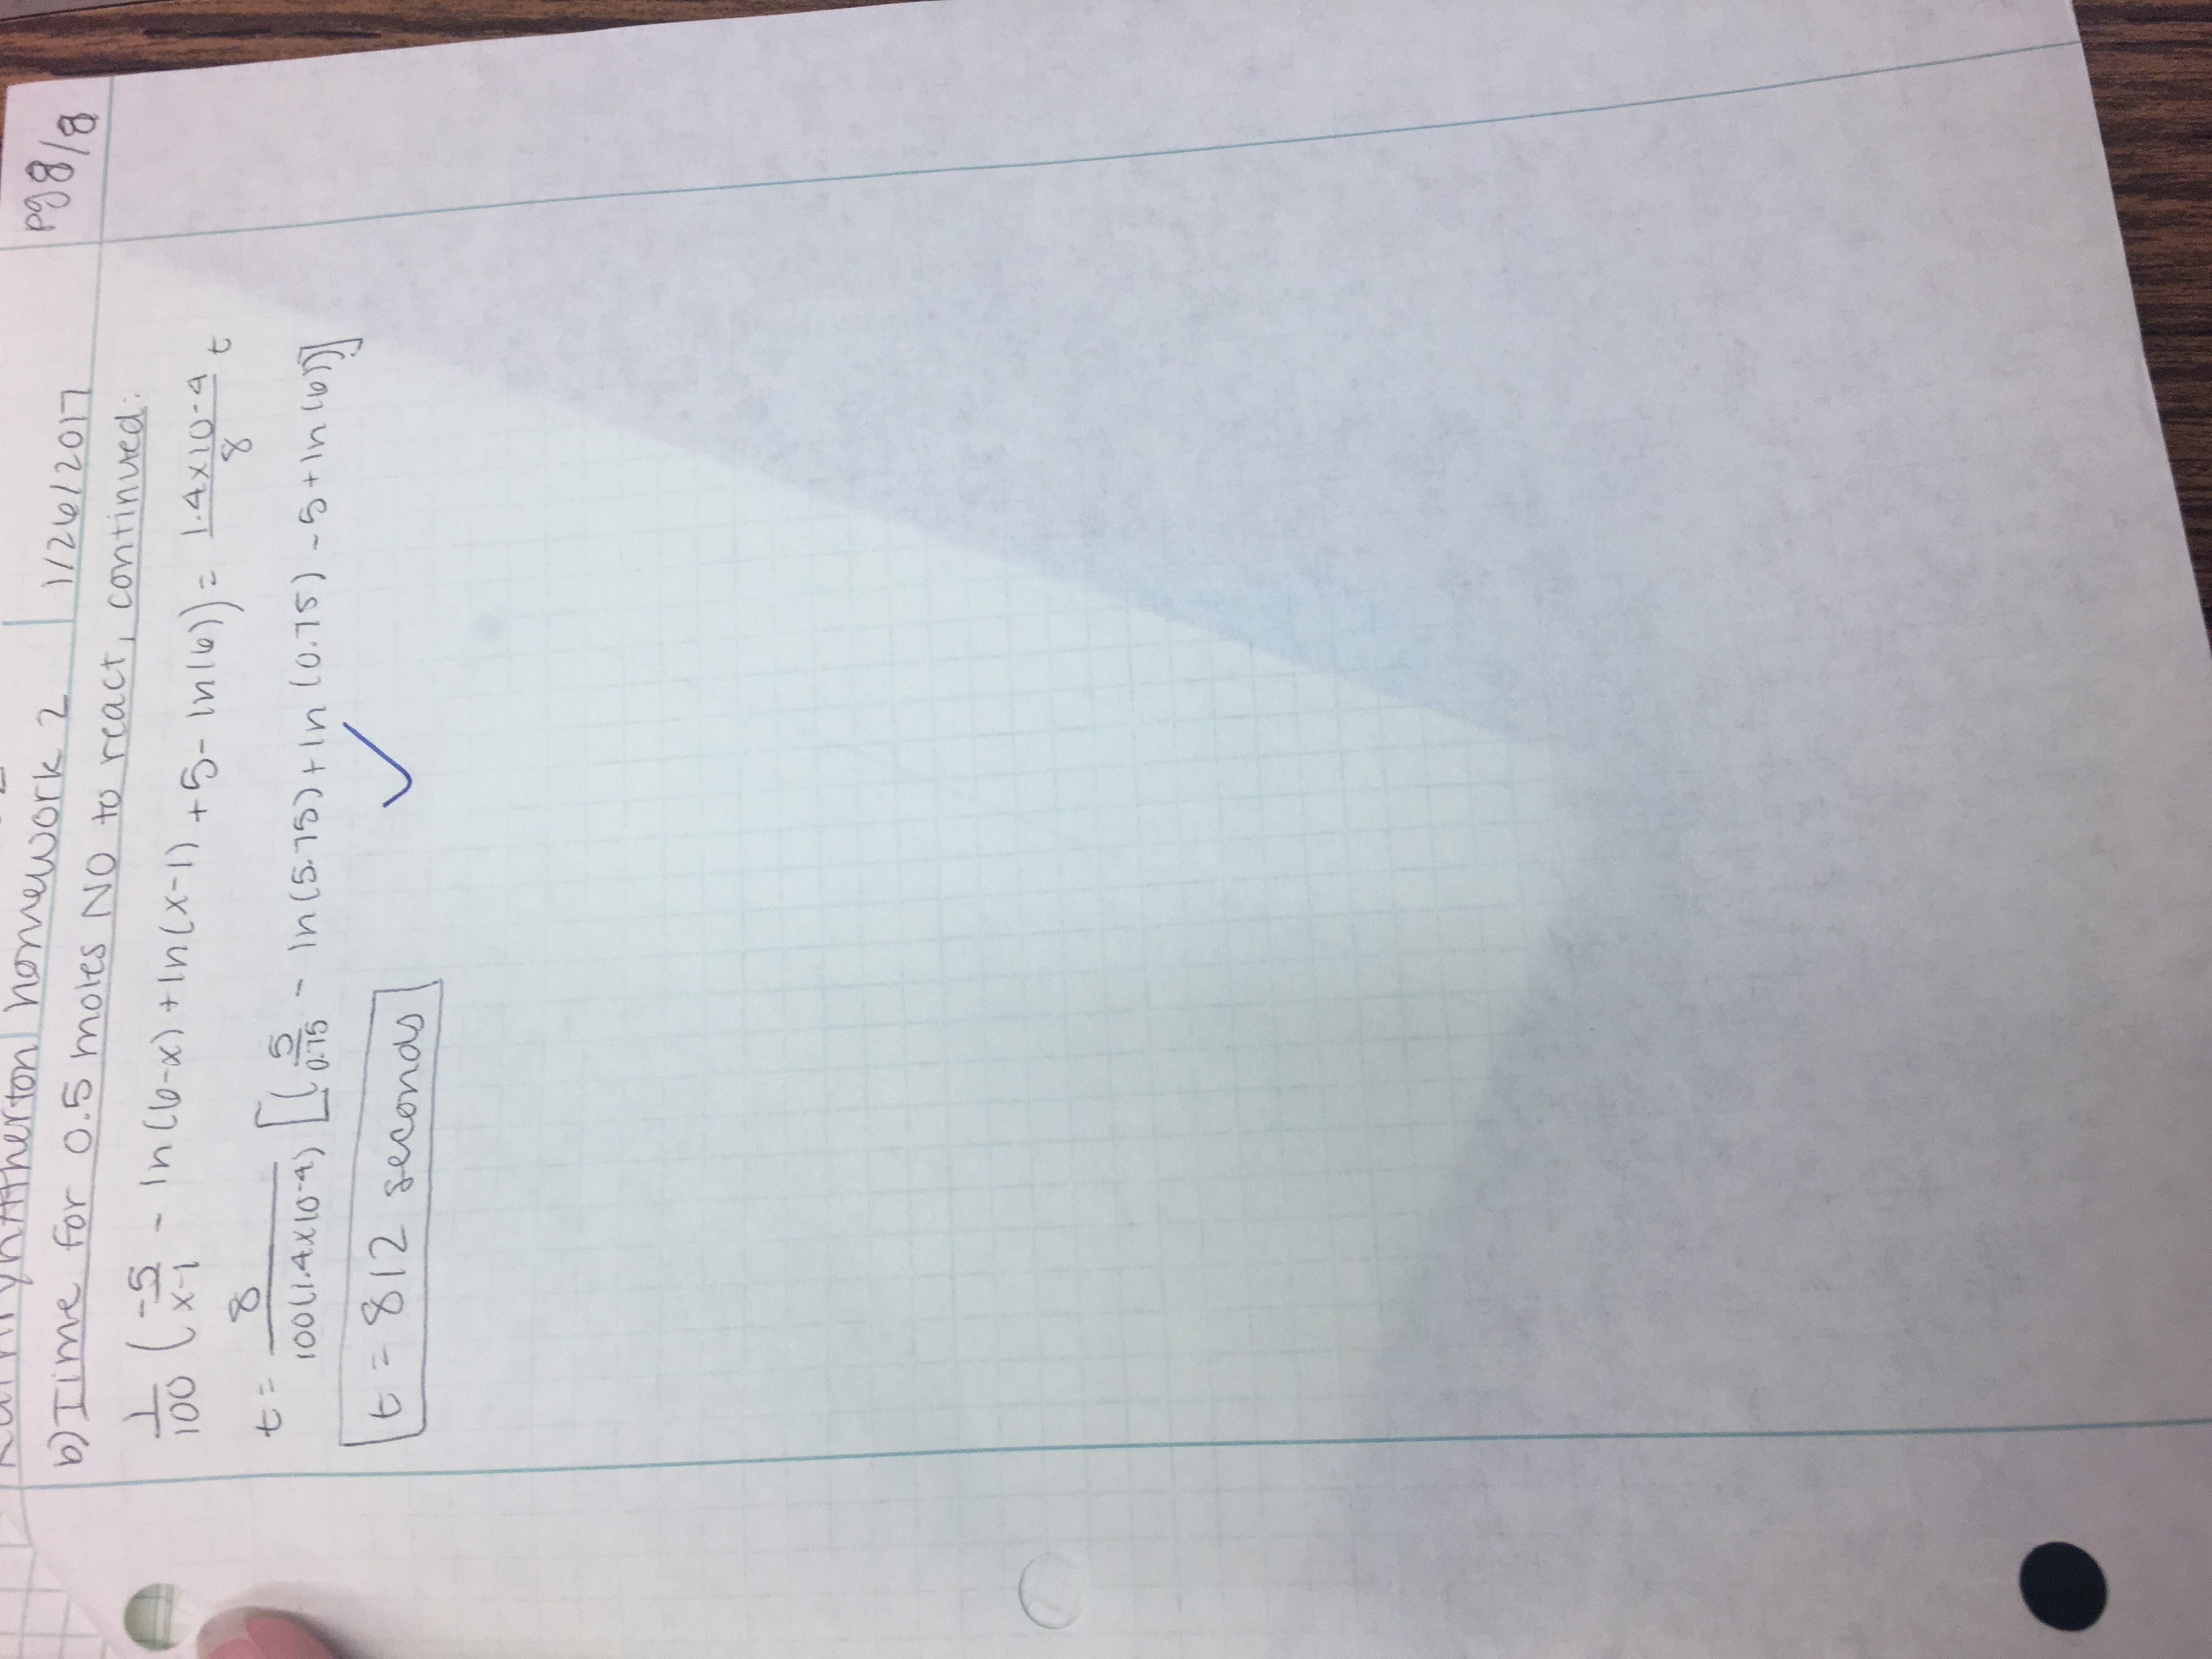 Kathryn Atherton homework 2 1/26/2017 pg 8/8
b) Time for 0.5 moles NO to react, continued:
1/100 ( -5/x-1 - ln(6-x) + ln(x-1) + 5 - ln(6)) = 1.4x10-4/8 t
t = 8/100(1.4x10-4) [( 5/0.75 - ln(5.75) + ln(0.75) - 5 + ln(6))]
t = 812 seconds